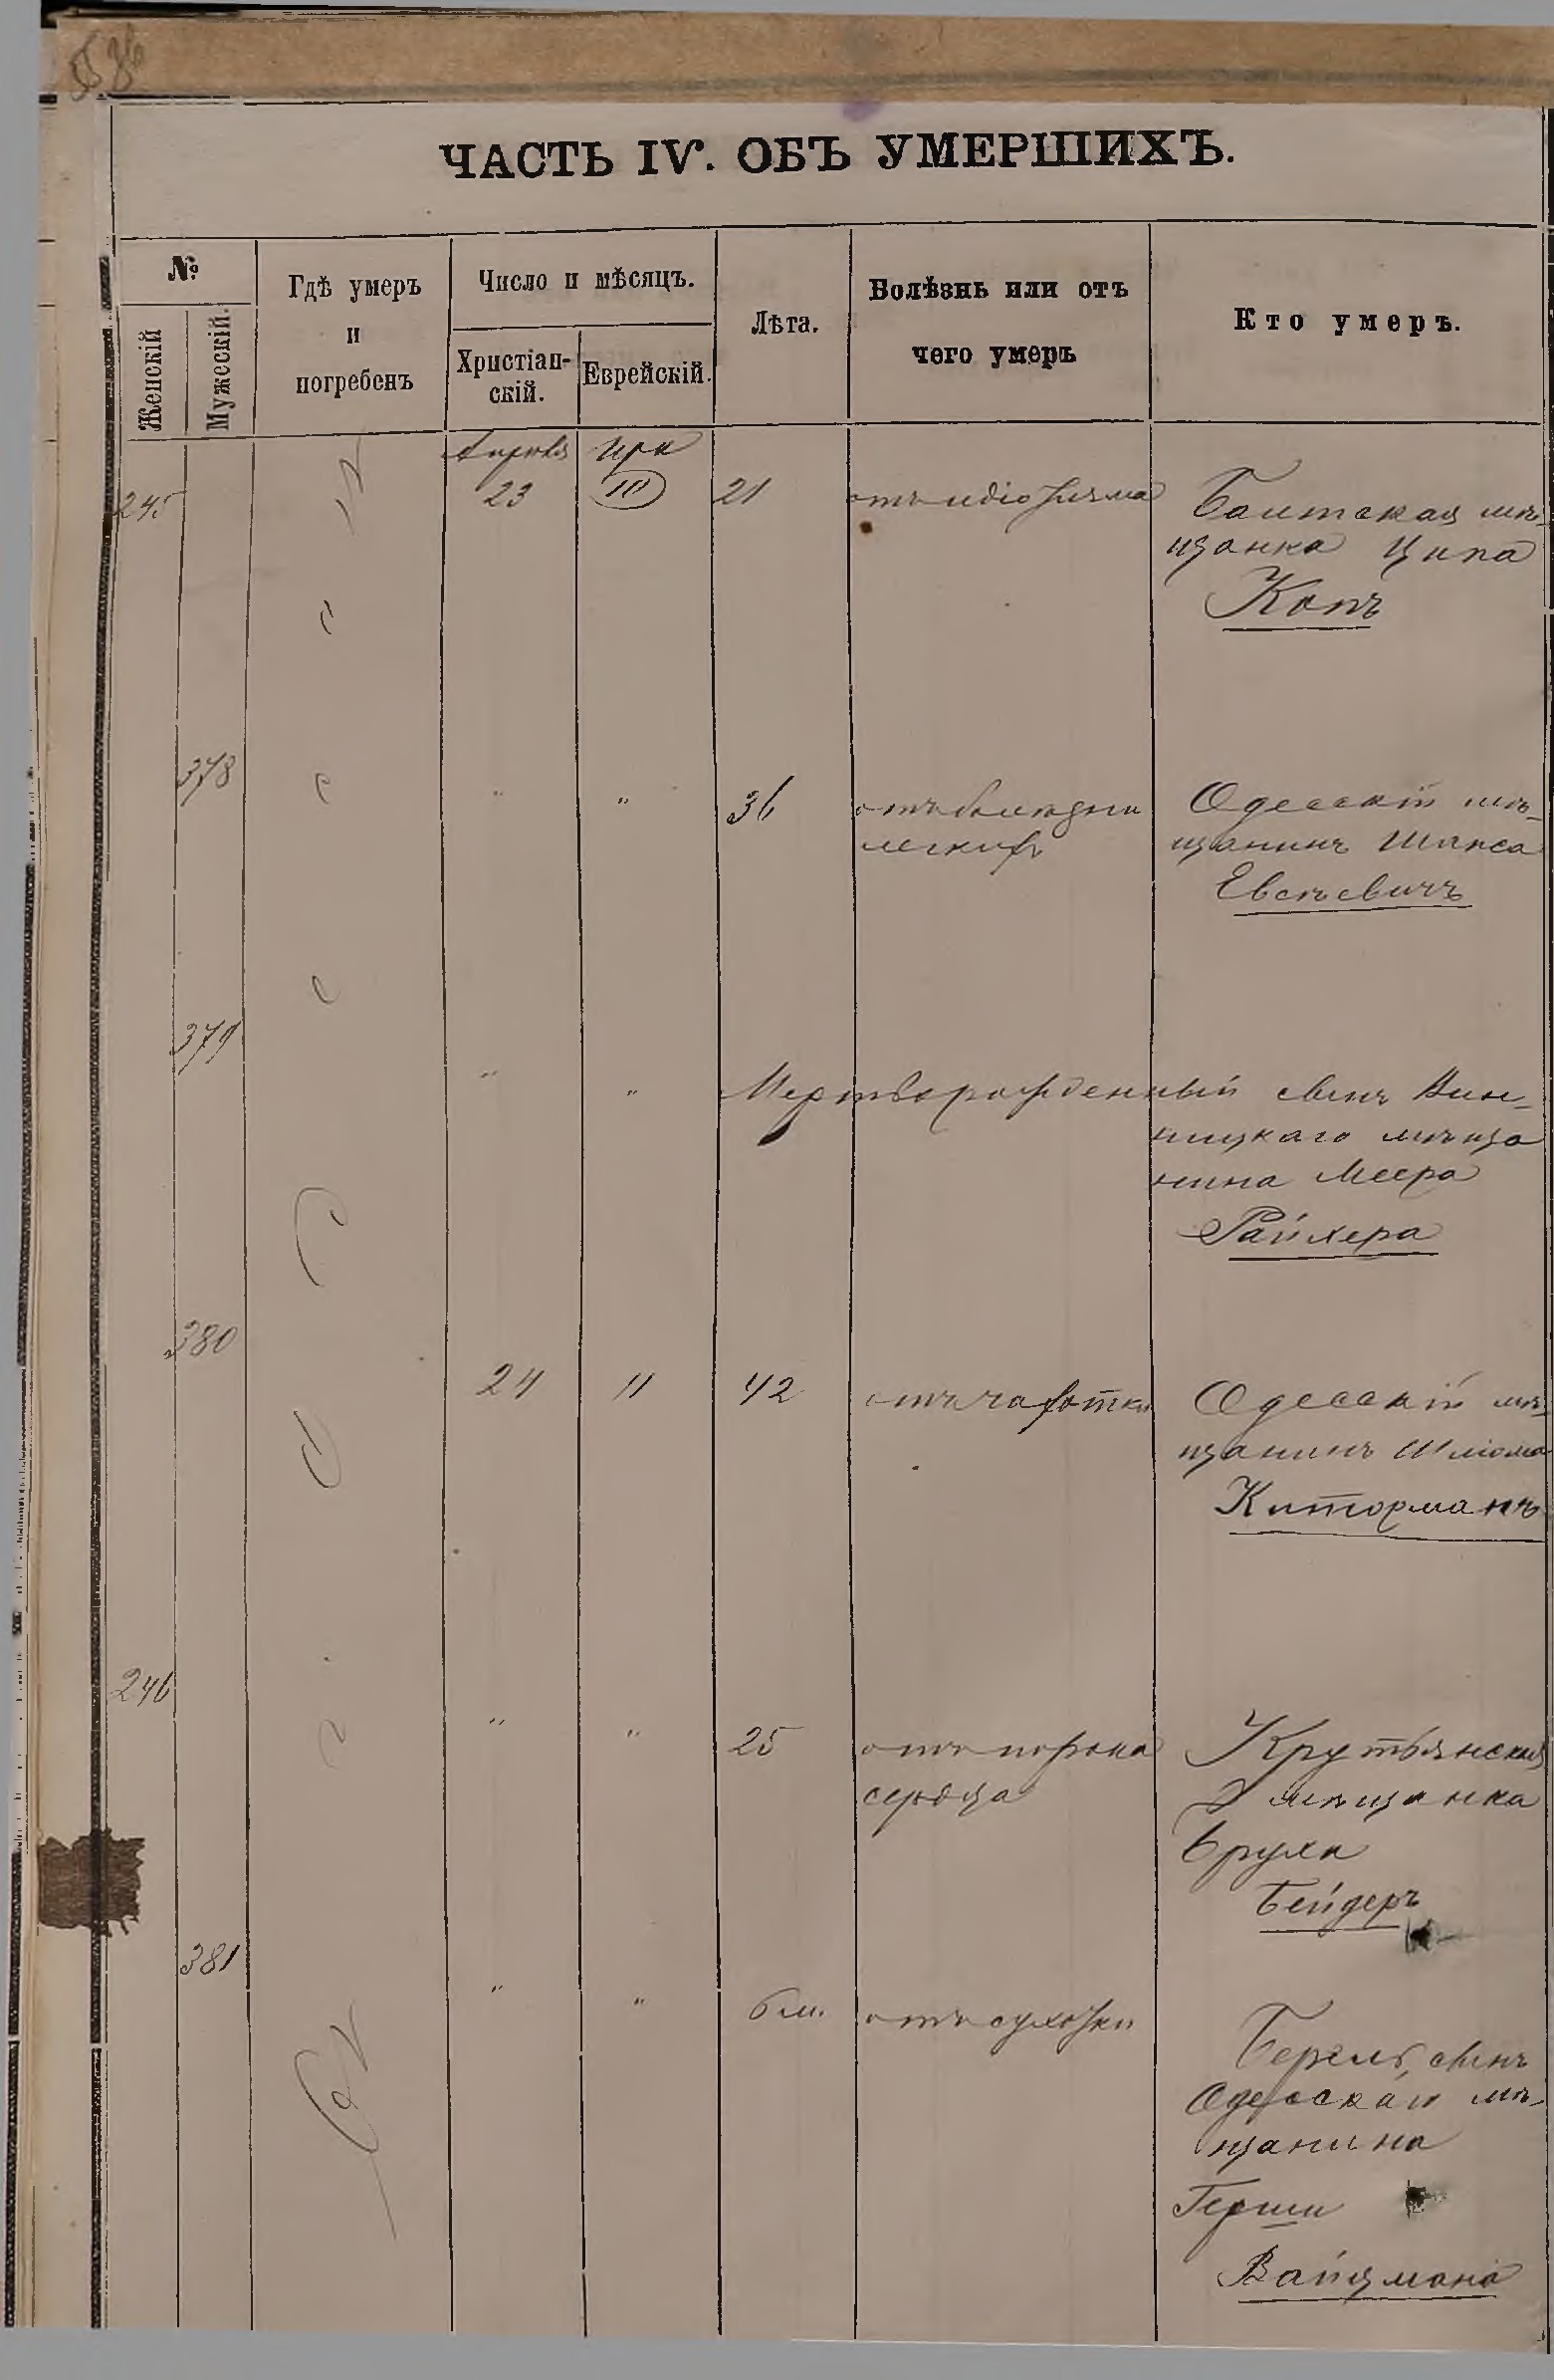 ЧАСТЬ IV. ОБЪ УМЕРШИХЪ.
№
Женскій
Мужескій.
Гдѣ умеръ
и
погребенъ
Число и мѣсяцъ.
Христіан-
скій.
Еврейскій.
Лѣта.
Болѣзнь или отъ
чего умеръ
Кто умеръ.
Апрѣля Ира
245 23 10 21 отъ идіотизма Балтская мѣ-
щанка Ципа
Копъ
378 " " 36 отъ болѣзни Одесскій мѣ-
легкихъ щанинъ Шапса
Евсѣевичъ
379 " " Мертворожденный сынъ Вин-
ницкаго мѣща
нина Меера
Райхера
380 24 11 42 отъ чахотки Одесскій мѣ-
щанинъ Шлома
Киторманъ
246 " " 25 отъ порока Крутьянская
сердца мѣщанка
Бруха
Бейдеръ
381 " " 6 м. отъ сухотки Берель, сынъ
Одесскаго мѣ-
щанина
Герши
Вайцмана